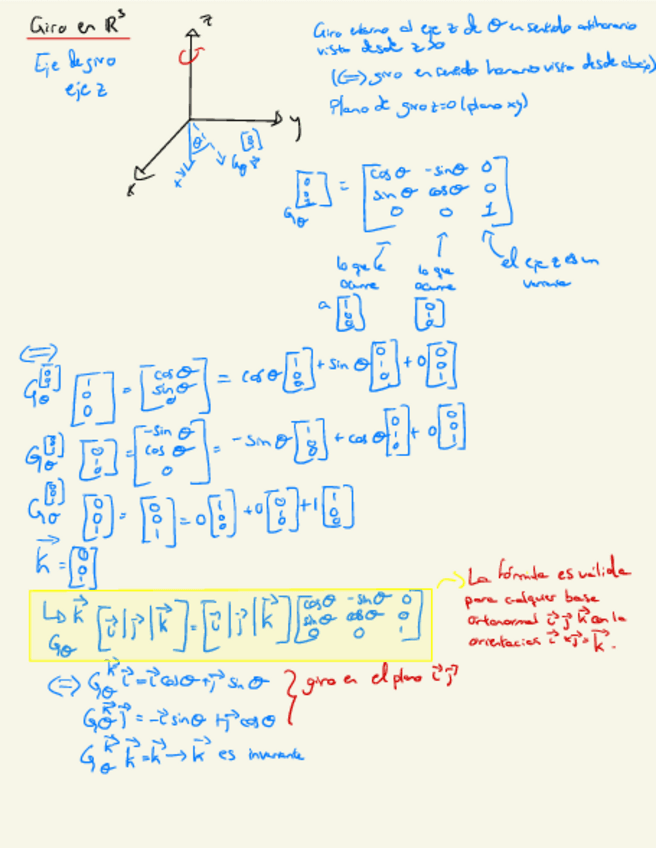 Giro en ℝ³
Eje de giro
eje z
z
y
x
θ
Giro en torno al eje z de θ en sentido antihorario
vista desde z>0
(⟺) giro en sentido horario vista desde abajo)
Plano de giro z=0 (plano xy)
G_θ^[0 0 1] = [cosθ -sinθ 0
sinθ cosθ 0
0 0 1]
lo que le ocurre a [1 0 0]
lo que ocurre [0 1 0]
el eje z es invariante
⟺
G_θ [1 0 0] = [cosθ sinθ 0] = cosθ [1 0 0] + sinθ [0 1 0] + 0 [0 0 1]
G_θ [0 1 0] = [-sinθ cosθ 0] = -sinθ [1 0 0] + cosθ [0 1 0] + 0 [0 0 1]
G_θ [0 0 1] = [0 0 1] = 0 [1 0 0] + 0 [0 1 0] + 1
k⃗ = [0 0 1]
↳ G_θ^k⃗ [i⃗ | j⃗ | k⃗] = [i⃗ | j⃗ | k⃗] [cosθ -sinθ 0
sinθ cosθ 0
0 0 1]
La fórmula es válida
para cualquier base
ortonormal i⃗ j⃗ k⃗ con la
i⃗ × j⃗ = k⃗.
(⟺) G_θ^k⃗ i⃗ = i⃗ cosθ + j⃗ sinθ
G_θ^k⃗ j⃗ = -i⃗ sinθ + j⃗ cosθ
giro en el plano i⃗ j⃗
G_θ^k⃗ k⃗ = k⃗ → k⃗ es invariante